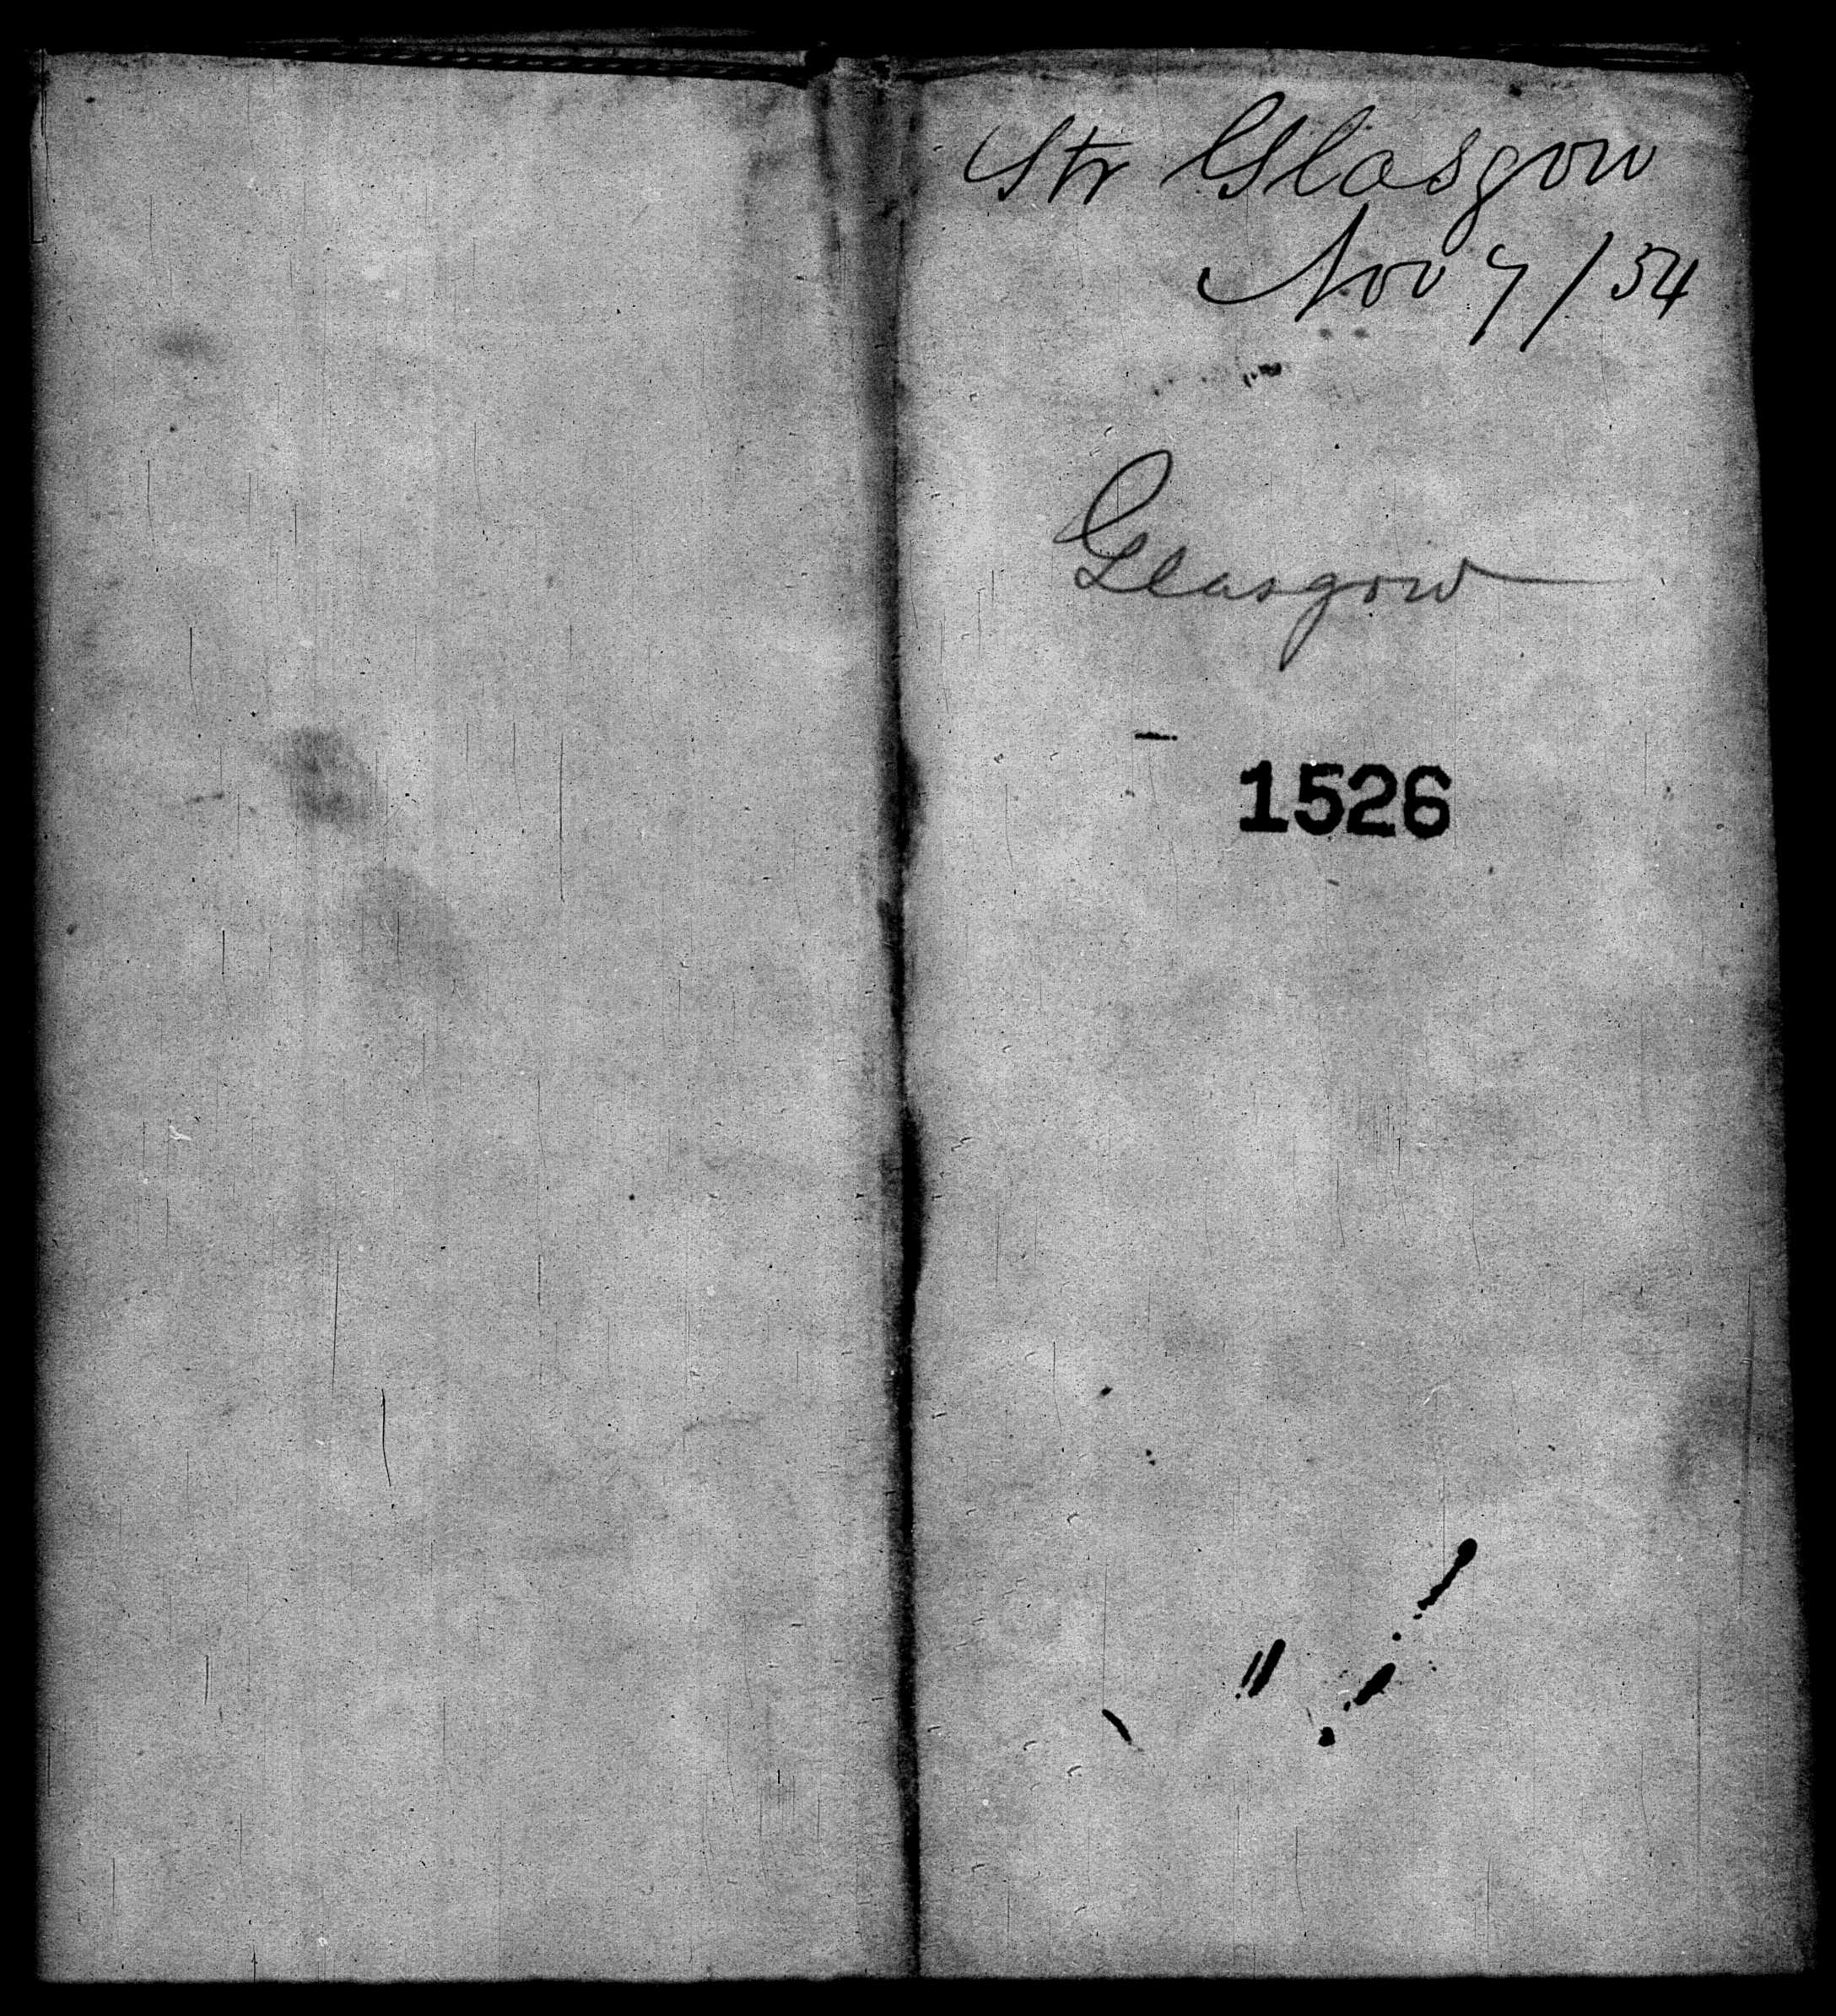 Str Glasgow
Nov 7/54
Glasgow
1526